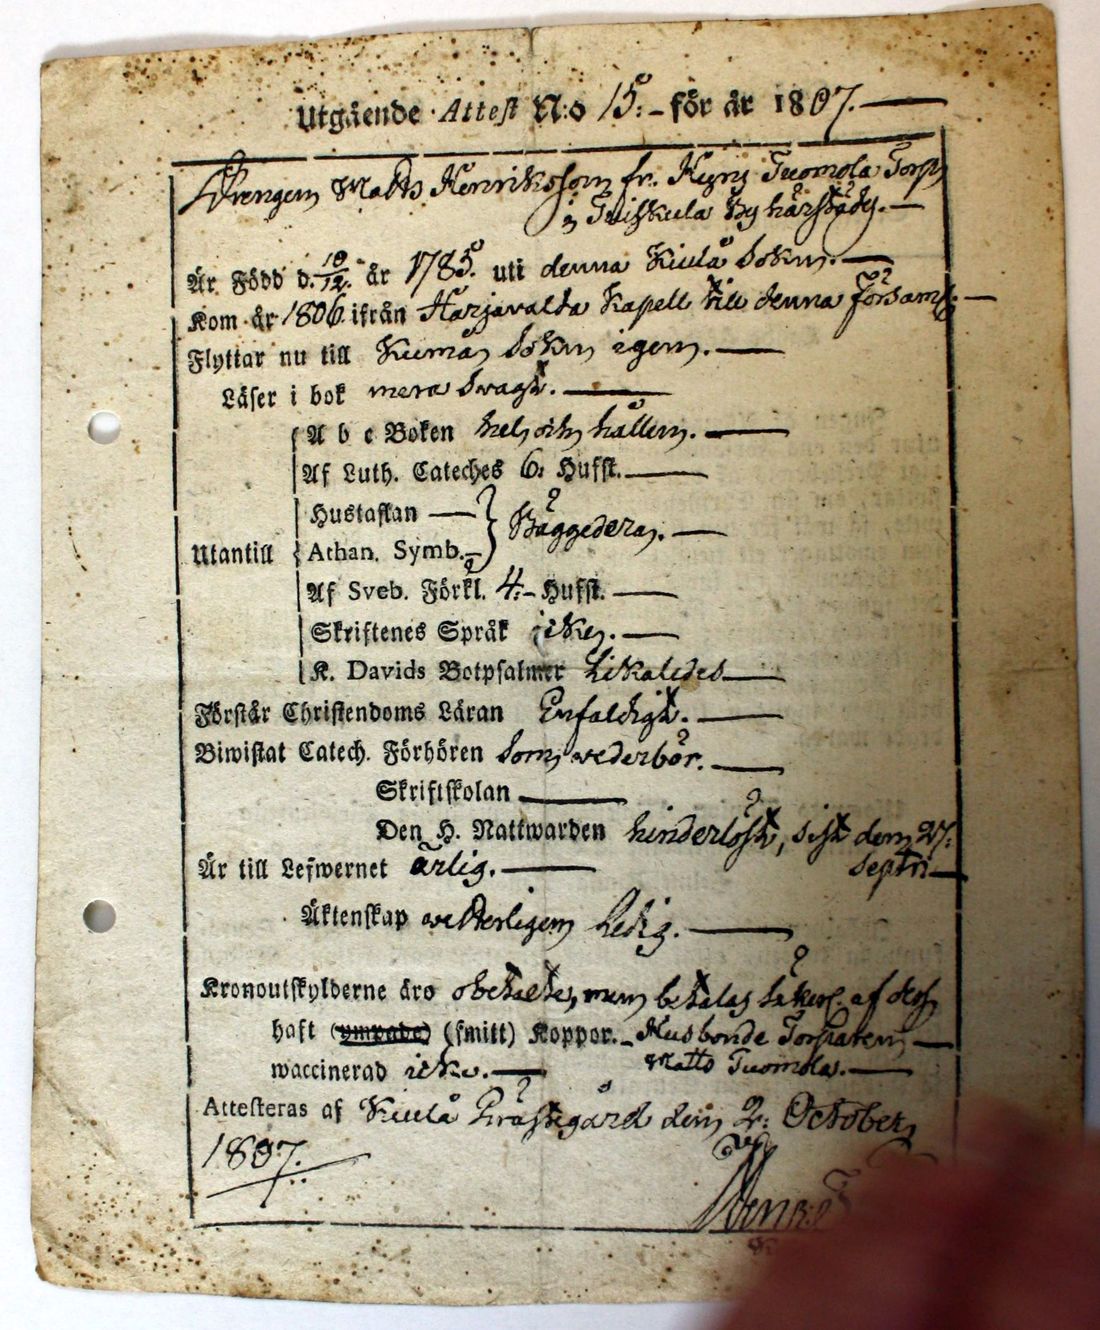 Utgående Attest N:o 15:- för år 1807.
Drengen Matts Henriksson fr. Kyrs Tuomola Torp
i Tuiskula By härstädes.
Är Född d. 10/12. år 1785. uti denna Kiulå Sokn.
Kom år 1806. ifrån Harjavalda Kapell till denna Församl.
Flyttar nu till Kumå Sokn igen.
Läser i bok mera Svagt.
A b c Boken hel och hållen.
Af Luth. Cateches 6: Hufst.
Hustaflan
Bäggedera.
Utantill
Athan. Symb.
Af Sveb. Förkl. 4:- Hufst.
Skriftenes Språk icke.
K. Davids Botpsalmer Likaledes
Förstår Christendoms Läran Enfaldigt.
Biwistat Catech. Förhören Som vederbör.
Skriftskolan
Den H. Nattwarden hinderlöst, sist den 27:
Septr
Är till Lefwernet ärlig.
Äktenskap vetterligen Ledig.
Kronoutskylderne äro obetalte, men betalas af dess
haft (ympade) (smitt) Koppor. Husbonde Torparen
waccinerad icke. Matts Tuomola.
Attesteras af Kiulå Prästegård den 2: October
1807.